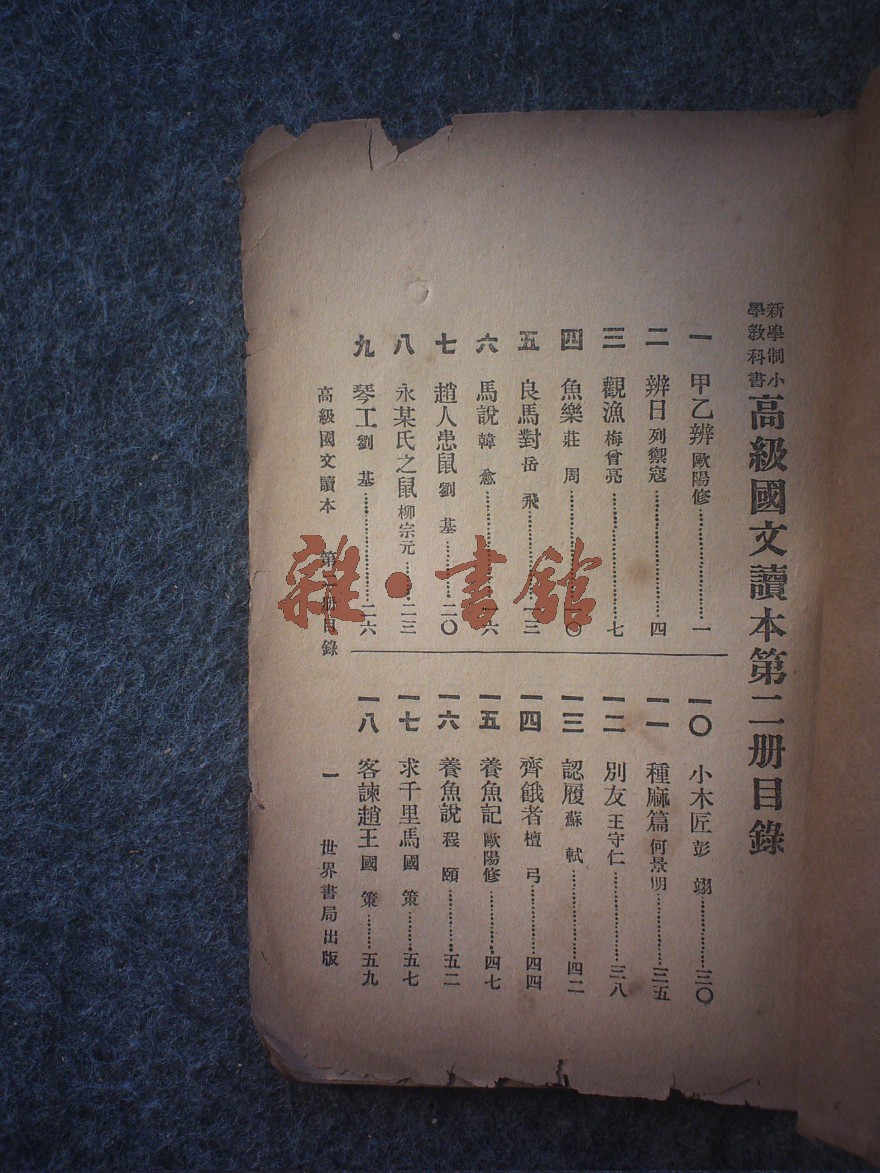 新學制小
學教科書
高級國文讀本第二册目錄
一 甲乙辨 歐陽修……一
二 辨日 列禦寇……四
三 觀漁 梅曾亮……七
四 魚樂 莊周……一〇
五 良馬對 岳飛……一三
六 馬說 韓愈……一六
七 趙人患鼠 劉基……二〇
八 永某氏之鼠 柳宗元……二三
九 琴工 劉基……二六
一〇 小木匠 彭翊……三〇
一一 種麻篇 何景明……三五
一二 別友 王守仁……三八
一三 認履 蘇軾……四二
一四 齊餓者 檀弓……四四
一五 養魚記 歐陽修……四七
一六 養魚說 程頤……五二
一七 求千里馬 國策……五七
一八 客諫趙王 國策……五九
高級國文讀本 第二册目錄 一 世界書局出版
雜·書館